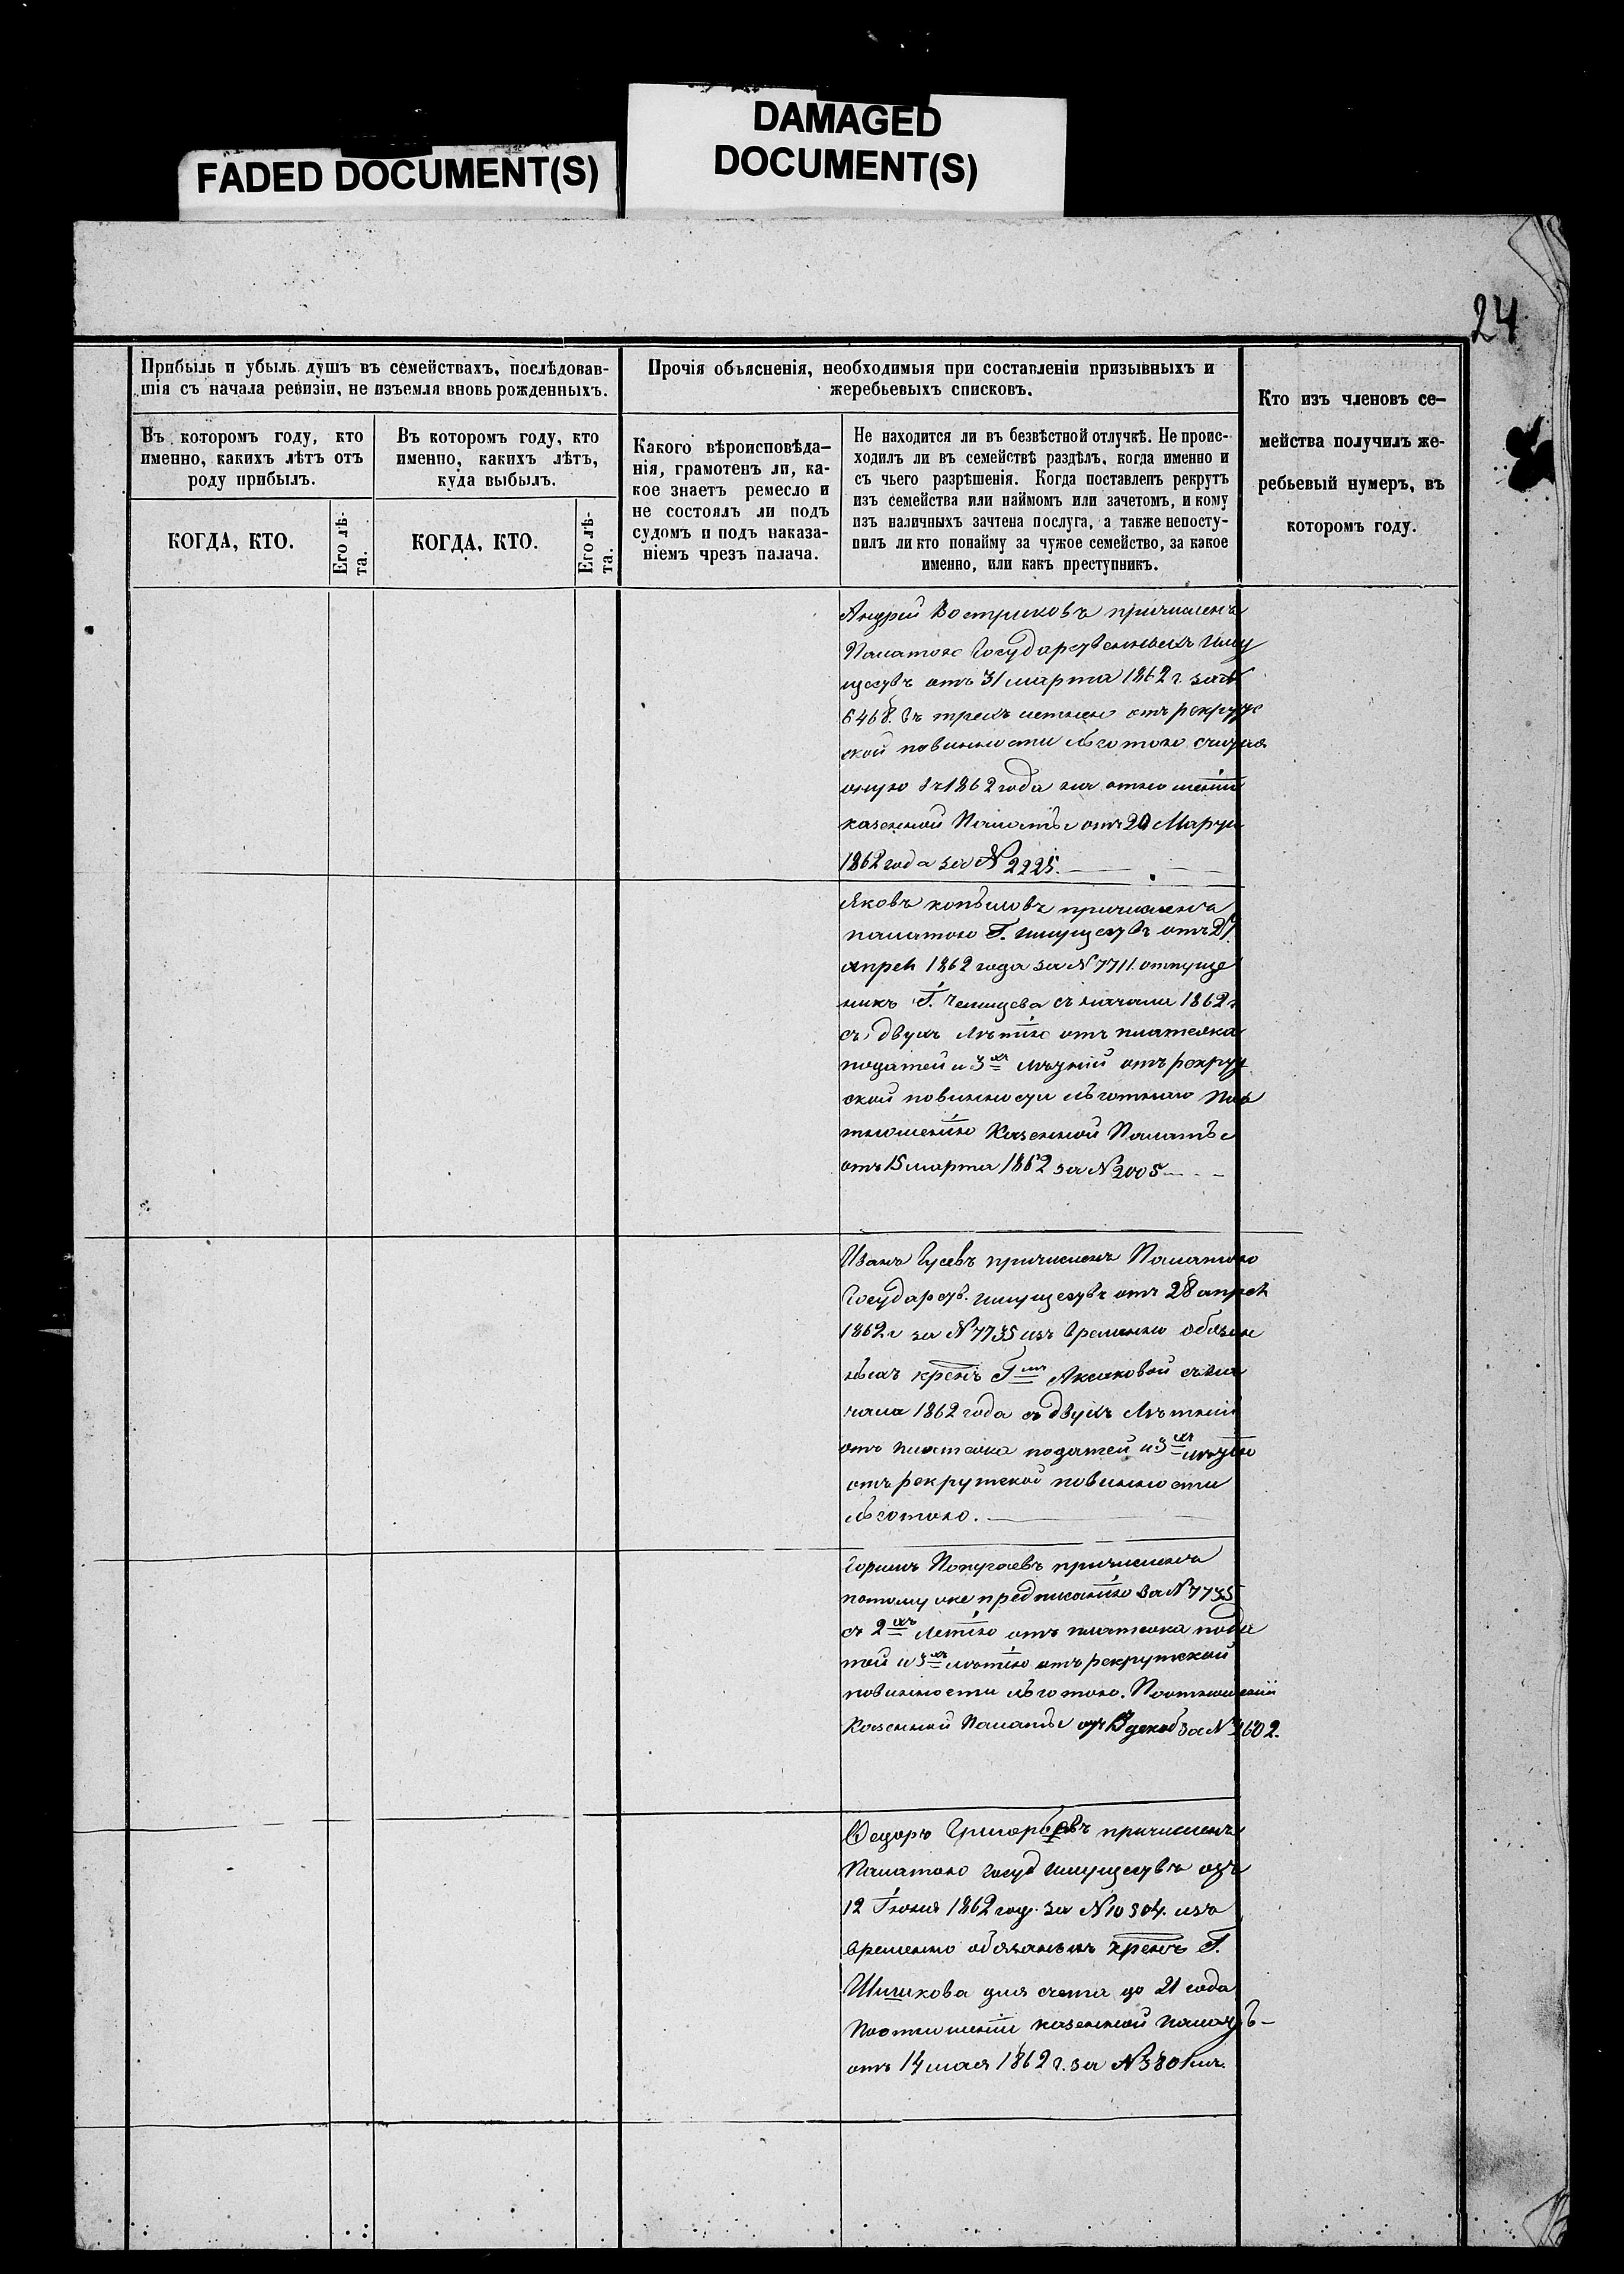 FADED DOCUMENT(S)
DAMAGED
DOCUMENT(S)
24
Прибыль и убыль душъ въ семействахъ, послѣдовав-
шія съ начала ревизіи, не изъемля вновь рожденныхъ.
Въ котором году, кто
именно, какихъ лѣтъ отъ
роду прибылъ.
Въ котором году, кто
именно, какихъ лѣтъ,
куда выбылъ.
КОГДА, КТО.
Его лѣ-
та.
КОГДА, КТО.
Его лѣ-
та.
Прочія объясненія, необходимыя при составленіи призывныхъ и
жеребьевыхъ списковъ.
Какого вѣроисповѣда-
нія, грамотенъ ли, ка-
кое знаетъ ремесло и
не состоялъ ли подъ
судомъ и подъ наказа-
ніемъ чрезъ палача.
Не находится ли въ безвѣстной отлучкѣ. Не проис-
ходилъ ли въ семействѣ раздѣлъ, когда именно и
съ чьего разрѣшенія. Когда поставленъ рекрутъ
изъ семейства или наймомъ или зачетомъ, и кому
изъ наличныхъ зачтена послуга, а также непосту-
пилъ ли кто понайму за чужое семейство, за какое
именно, или какъ преступникъ.
Кто изъ членовъ се-
мейства получилъ же-
ребьевый нумеръ, въ
котором году.
Андрей Востриковъ причисленъ
Палатою Государственныхъ Иму
ществъ отъ 31 марта 1862 г. за №
6468. Съ трехъ летнею отъ рекрут
ской повинности льготою считая
оную съ 1862 года на отношеніи
казенной Палаты отъ 20 Марта
1862 года за № 2225.
Яковъ Копыловъ причисленъ
палатою Г. имуществъ отъ
апрел 1862 года за № 7711. отпуще
никъ Г. съ начала 1862 г
съ двухъ лѣтнію отъ платежа
податей и 3хъ лѣтній отъ рекрут
ской повинности льготнаго По о
тношенію Казенной Палаты
отъ 15 марта 1862 за № 2005
Иванъ Гусевъ причисленъ Палатою
Государств. имуществъ отъ 28 апрел
1862 г за № 7735 изъ временно обязан
ныхъ крянъ Гжи Аксаковой съ на
чала 1862 года съ двухъ лѣтній
отъ платежа податей и 3хъ лѣтню
отъ рекрутской повинности
льготою.
Попугаевъ причисленъ
потому же предписанію за № 7735
съ 2хъ летнію отъ платежа пода
тей и 3хъ лѣтнію отъ рекрутской
повинности льготою. Поотношеніи
Казенной Палаты отъ декаб за №
Федоръ Григорьевъ причисленъ
Палатою Госуд имуществъ отъ
12 Іюня 1862 год. за № 10304. изъ
временно обязанныхъ крянъ Г.
Шишкова для счета до 21 года
Поотношеніи казенной Палатѣ-
отъ 14 мая 1862 г. за №